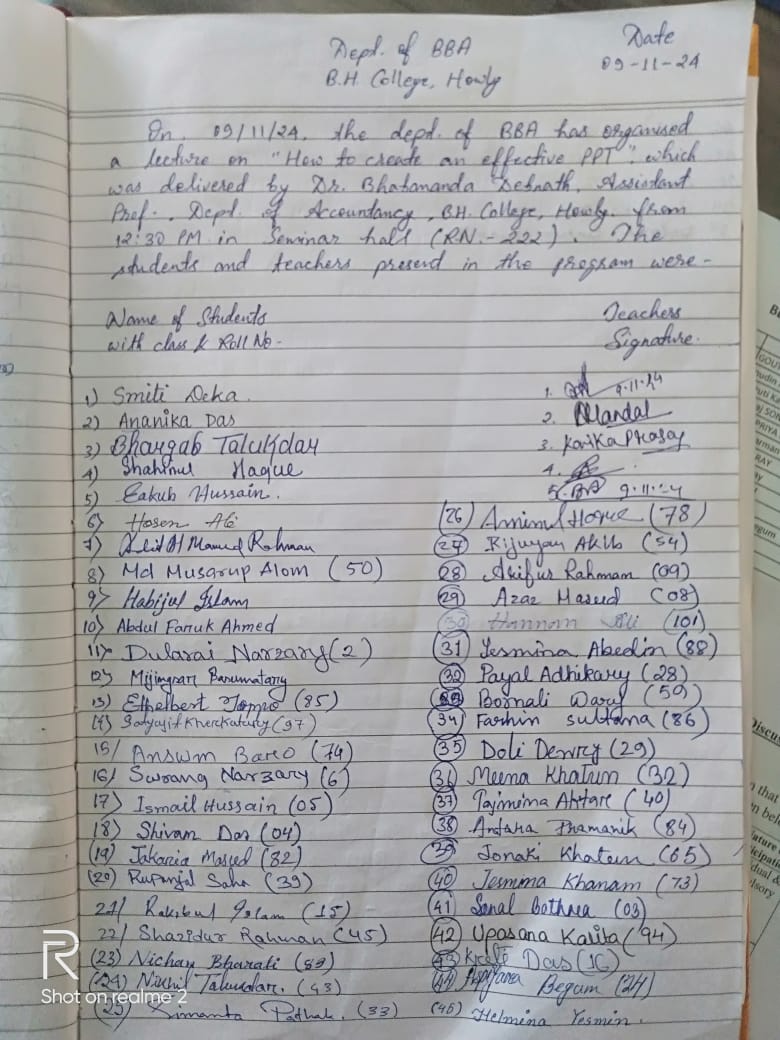 Dept. of BBA
B.H. College, Howly
Date
09-11-24
On 09/11/24, the dept. of BBA has organised
a lecture on "How to create an effective PPT", which
was delivered by Dr. Bhabananda Debnath, Assistant
Prof., Dept. of Accountancy, B.H. College, Howly. from
12:30 PM in Seminar hall (RN.-222). The
students and teachers present in the program were-
Name of Students
with class & Roll No-
Teachers
Signature.
1) Smiti Deka.
2) Ananika Das
3) Bhargab Talukdar
4) Shahinul Haque
5) Eakub Hussain.
6) Hosen Ali
7) Rahman
8) Md Musarup Alom (50)
9) Habijul Islam
10) Abdul Faruk Ahmed
11) Dularai Narzary (2)
12) Mijingsar Basumatary
13) Ethelbert Toppo (85)
14) Satyajit Kherkatary (97)
15/ Answm Baro (74)
16/ Swrang Narzary (6)
17) Ismail Hussain (05)
18) Shivam Das (04)
(19) Jakaria Masud (82)
(20) Rupanjal Saha (39)
21/ Rakibul Islam (15)
22/ Shazidur Rahman (45)
(23) Nichay Bharali (89)
(24) Nikhil Talukdar. (43)
(25) Pathak. (33)
1. 9.11.24
2. Mandal
3. Kavika Prasay
4.
5. 9.11.24
(26) Aminul Hoque (78)
(27) Rijuyan Akib (54)
(28) Asifur Rahman (09)
(29) Azaz Masud (08)
(30) Hannan Ali (101)
(31) Yesmina Abedin (88)
(32) Payal Adhikary (28)
(33) Bornali Wary (59)
(34) Farhin Sultana (86)
(35) Doli Dewry (29)
(36) Meena Khatun (32)
(37) Tajmina Aktare (40)
(38) Antara Pramanik (84)
(39) Jonaki Khatun (65)
(40) Jesmina Khanam (73)
(41) Sonal Bothra (03)
(42) Upasana Kalita (94)
(43) Das (16)
(44) Begum (24)
(45) Helmina Yesmin.
R
Shot on realme 2